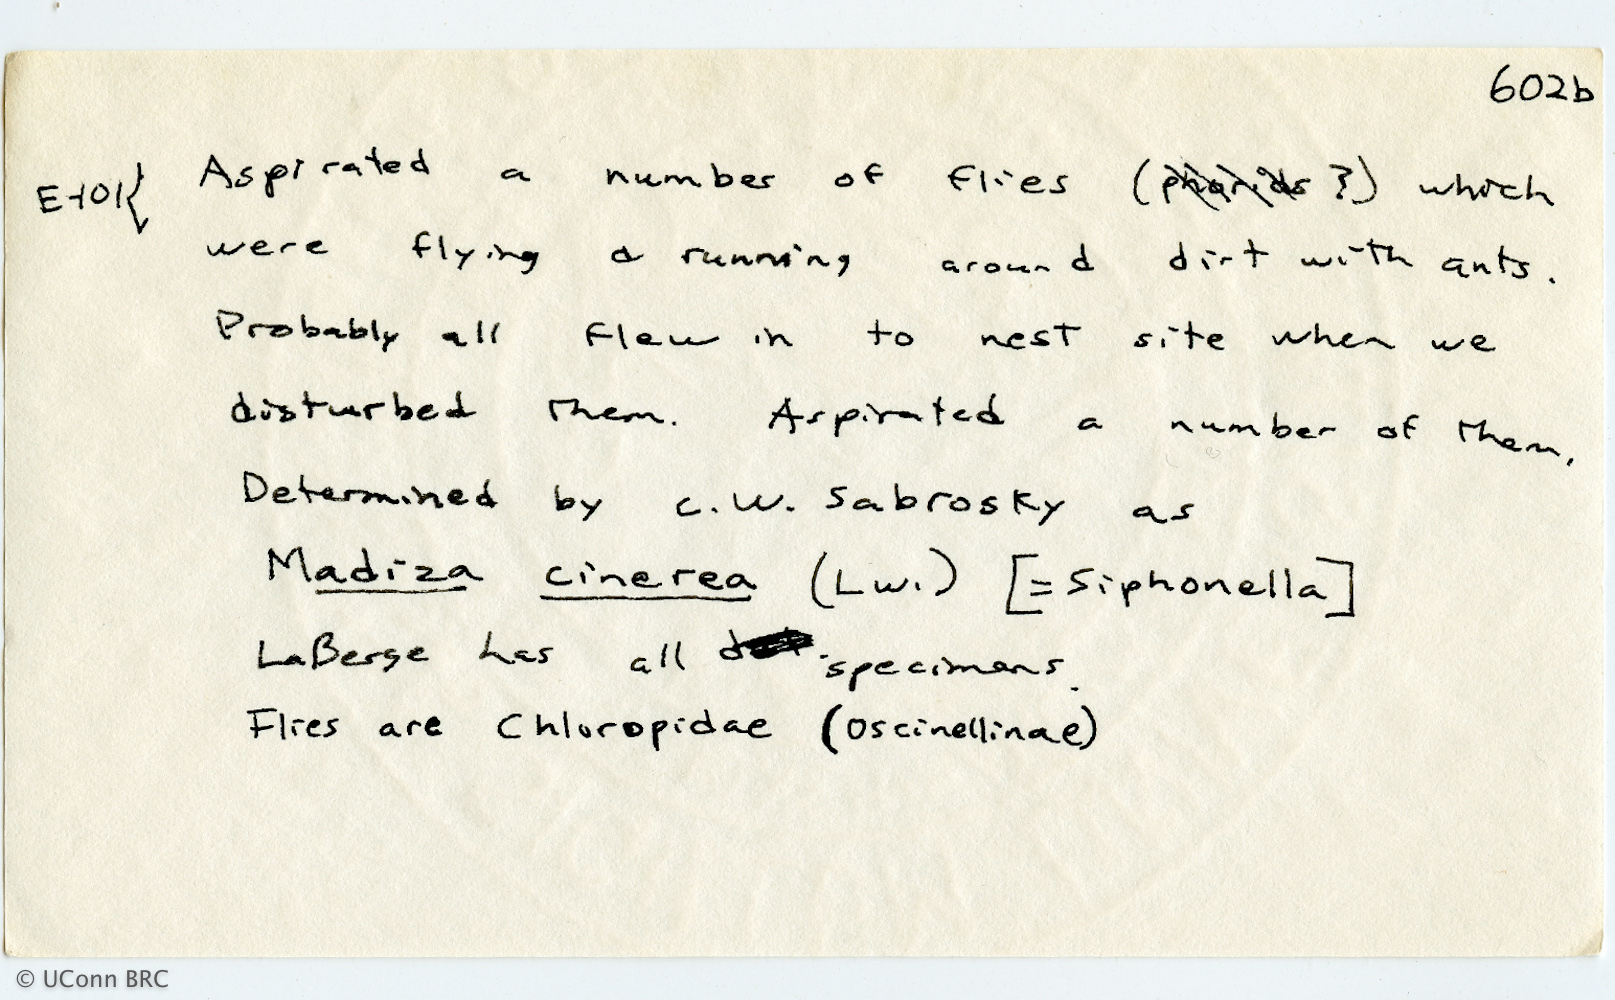 602b
E-101{ Aspirated a number of flies (phorids ?) which
were flying & running around dirt with ants.
Probably all flew in to nest site when we
disturbed them. Aspirated a number of them.
Determined by C.W. Sabrosky as
Madiza cinerea (Lw.) [=Siphonella]
LaBerge has all specimens.
Flies are Chloropidae (Oscinellinae)
© UConn BRC